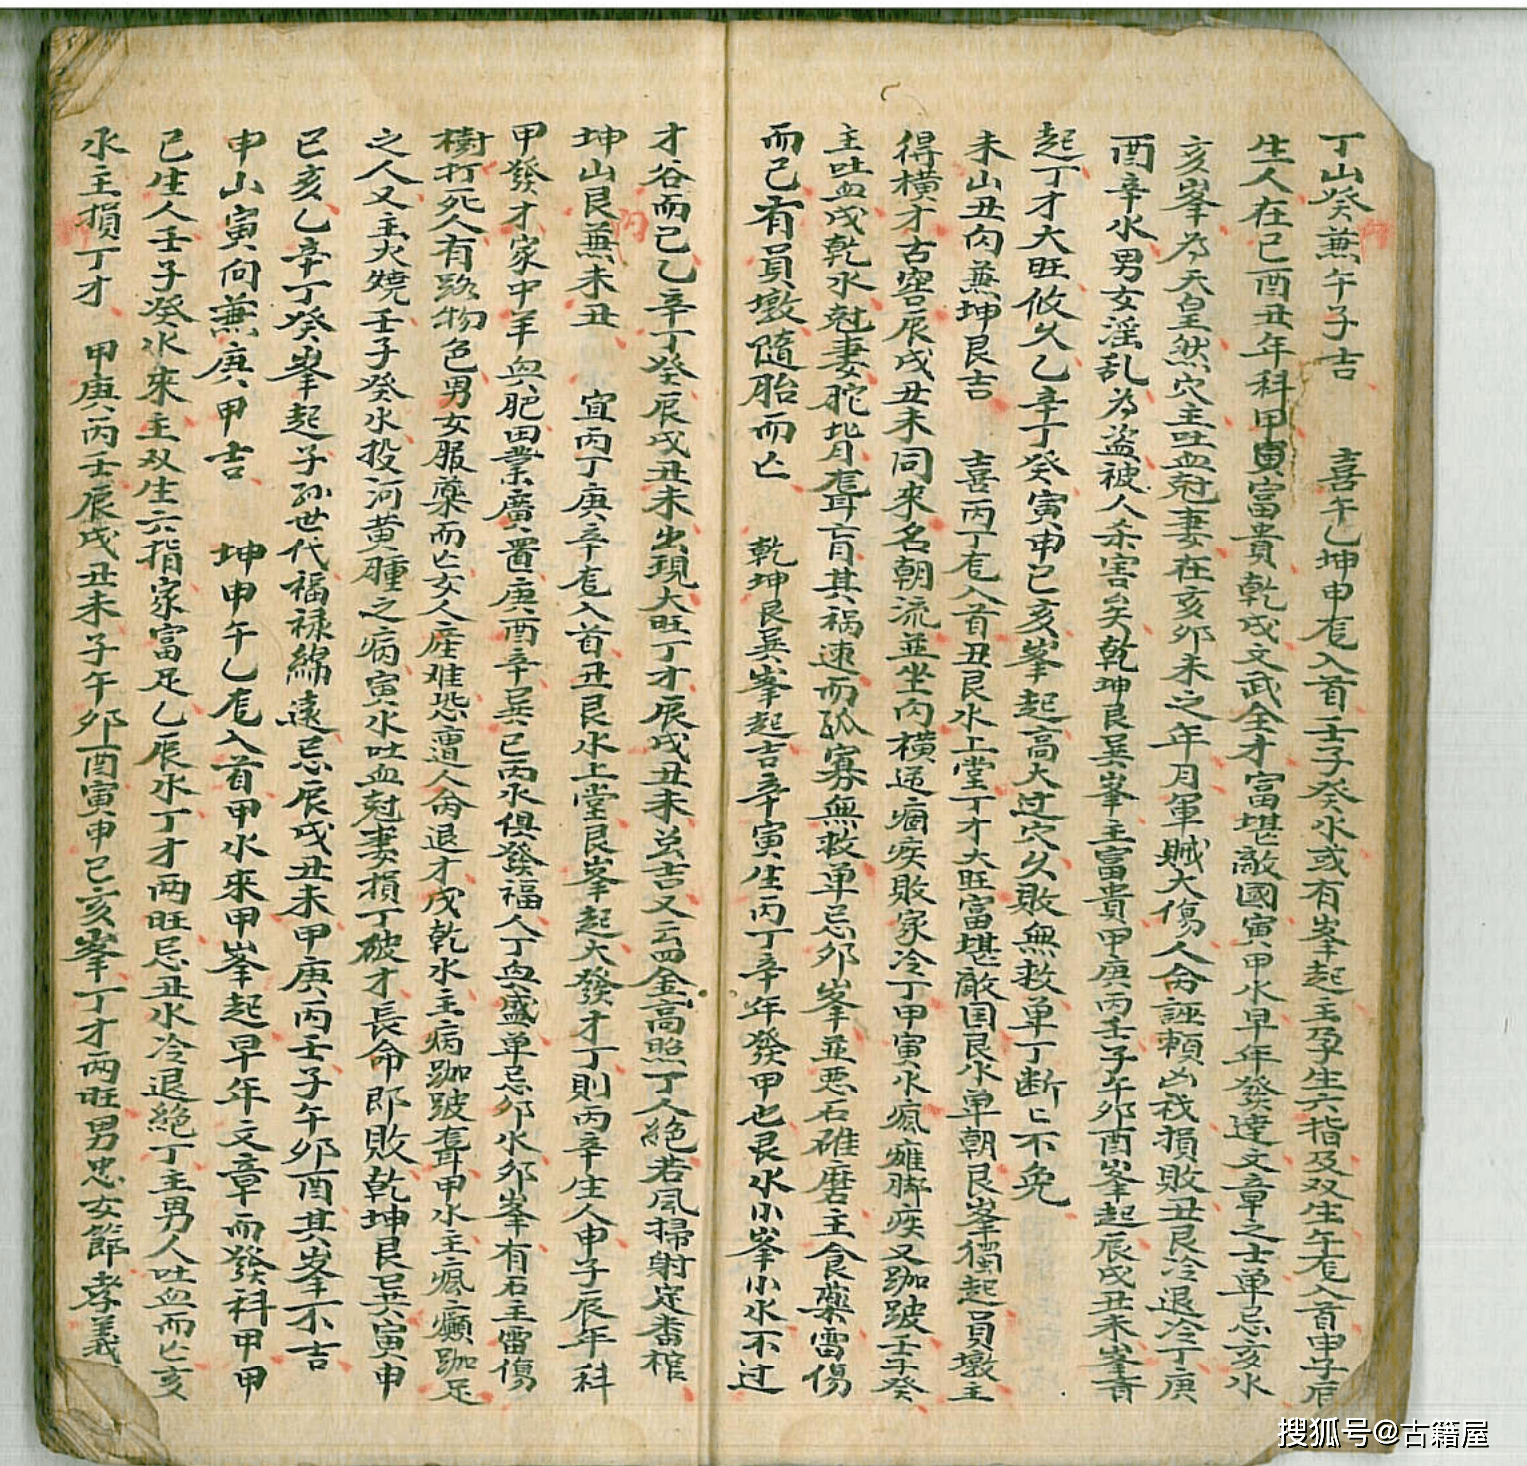 丁山癸兼午子吉 喜午乙坤申𠂆入首壬子癸水或有峯起主孕生六指及双生午𠂆入首申子辰
生人在巳酉丑年科甲寅富貴乾戌文武全才富堪敵國寅甲水早年發達文章之士单忌亥水
亥峯為天皇煞穴主吐血尅妻在亥卯未之年月軍賊大傷人命誣頼凶栈損敗丑艮冷退冷丁庚
酉辛水男女淫乱為盗被人杀害矣乾坤艮巽峯主富貴甲庚丙壬子午卯酉峯起辰戌丑未峯齊
起丁才大旺攸久乙辛丁癸寅申巳亥峯起高大过穴久敗無救单丁断匕不免
未山丑向兼坤艮吉 喜丙丁𠂆入首丑艮水上堂丁才大旺富堪敵国艮水单朝艮峯獨起員墩主
得横才古窖辰戌丑未同來名朝流並坐向横逆痼疾敗家冷丁甲寅水瘋癱脚疾又跏跛壬子癸
主吐血戌乾水尅妻駝背𠂆耳盲目其祸速而孤寡無救单忌卯峯並恶石碓磨主食藥雷傷
而已有員墩隨胎而亡 乾坤艮巽峯起吉辛寅生丙丁辛年發甲也艮水小峯小水不过
才谷而已乙辛丁癸辰戌丑未出現大旺丁才辰戌丑未兑吉又云四金高照丁人絶若风掃射定番棺
坤山艮兼未丑 宜丙丁庚辛𠂆入首丑艮水上堂艮峯起大發才丁則丙辛生人申子辰年科
向
甲發才家中羊血肥田業廣置庚酉辛巽巳丙水俱發福人丁血盛单忌卯水卯峯有石主雷傷
樹打死人有路物色男女服藥而亡女人産难恐遭人命退才戌乾水主病跏跛聋耳甲水主瘋癲跏足
之人又主火燒壬子癸水投河黄腫之病寅水吐血尅妻損丁破才長命郎敗乾坤艮巽寅申
巳亥乙辛丁癸峯起子孙世代福禄綿遠忌辰戌丑未甲庚丙壬子午卯酉其峯不吉
申山寅向兼庚甲吉 坤申午乙𠂆入首甲水來甲峯起早年文章而發科甲甲
己生人壬子癸水來主双生六指家富足乙辰水丁才两旺忌丑水冷退絶丁主男人吐血而亡亥
水主損丁才 甲庚丙壬辰戌丑未子午卯酉寅申巳亥峯丁才两旺男忠女節孝義
搜狐号@古籍屋